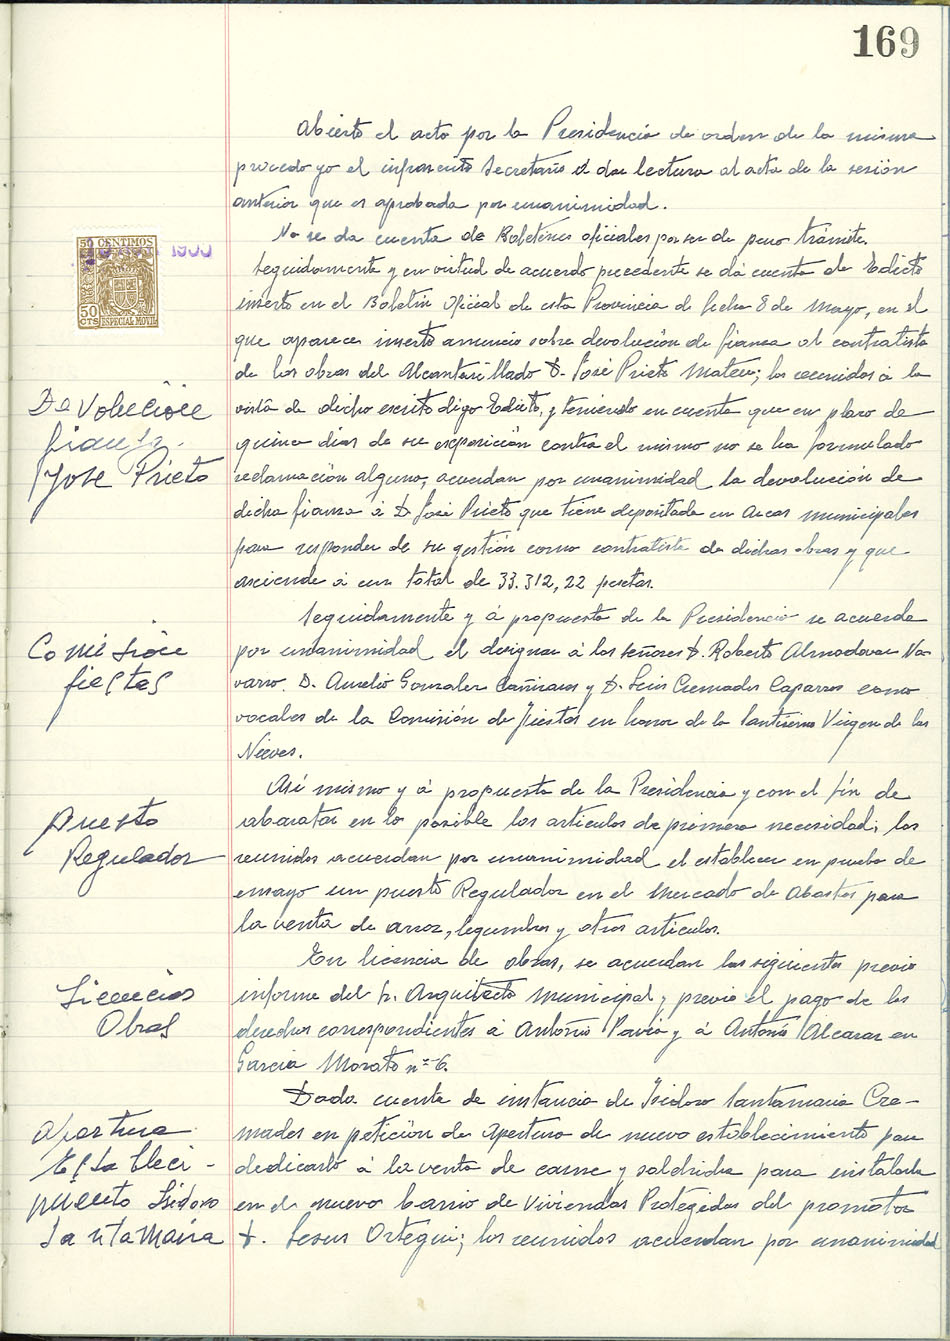 169
Abierto el acto por la Presidencia de orden de la misma
procedo yo el infrascrito Secretario á dar lectura al acta de la sesión
anterior que es aprobada por unanimidad.
No se da cuenta de Boletines oficiales por ser de puro trámite.
50 CENTIMOS
1955
50
CTS ESPECIAL MOVIL
Seguidamente y en virtud de acuerdo precedente se dá cuenta de Edicto
inserto en el Boletin Oficial de esta Provincia de fecha 8 de Mayo, en el
que aparece inserto anuncio sobre devolución de fianza al contratista
de las obras del Alcantarillado D. José Prieto Mateu; los reunidos á la
Devolución
fianza
José Prieto
vista de dicho escrito digo Edicto, y teniendo en cuenta que en plazo de
quince dias de su exposición contra el mismo no se ha formulado
reclamación alguna, acuerdan por unanimidad la devolución de
dicha fianza á D José Prieto que tiene depositada en Arcas municipales
para responder de su gestión como contratista de dichas obras y que
asciende á un total de 33.312,22 pesetas.
Comisión
fiestas
Seguidamente y á propuesta de la Presidencia se acuerda
por unanimidad el designar á los señores D. Roberto Almodovar Na-
varro. D. Aurelio Gonzalez Cañizares y D. Luis Cremades Caparros como
vocales de la Comisión de Fiestas en honor de la Santisima Virgen de las
Nieves.
Puesto
Regulador
Asi mismo y á propuesta de la Presidencia y con el fín de
abaratar en lo posible los articulos de primera necesidad; los
reunidos acuerdan por unanimidad el establecer en prueba de
ensayo un puesto Regulador en el Mercado de Abastos para
la venta de arroz, legumbres y otros articulos.
Licencias
Obras
En licencia de obras, se acuerdan las siguientes previo
informe del Sr. Arquitecto Municipal, y previo el pago de los
derechos correspondientes á Antonio Pavia y á Antonio Alcaraz en
Garcia Morato nº 6.
Apertura
Estableci-
miento Isidoro
Santamaria
Dada cuenta de instancia de Isidoro Santamaria Cre-
mades en petición de Apertura de nuevo establecimiento para
dedicarlo á la venta de carne y saldrida para instalarlo
en el nuevo barrio de Viviendas Protegidas del promotor
D. Jesus Ortegui; los reunidos acuerdan por unanimidad